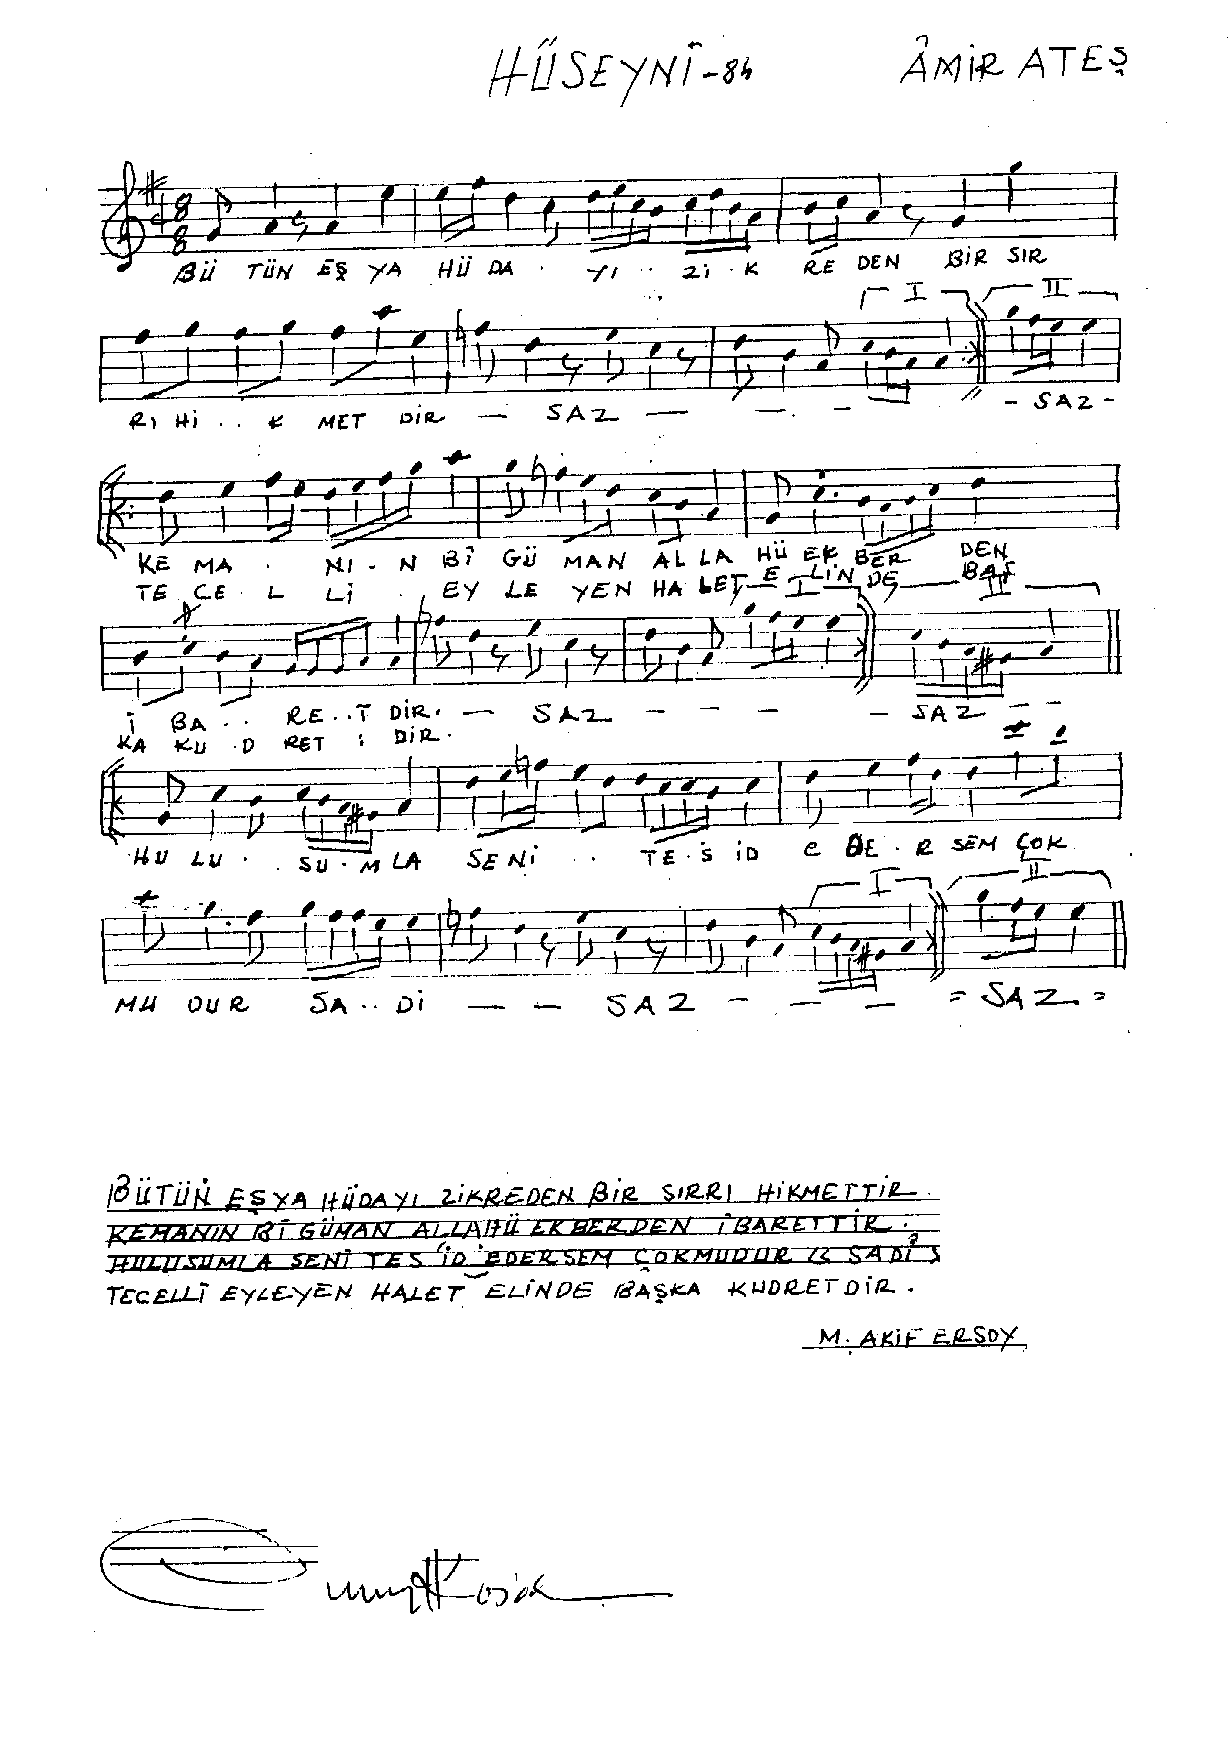 HÜSEYNÎ-84 ÂMİR ATEŞ
BÜ TÜN EŞ YA HÜ DA . YI .. Zİ . K RE DEN BİR SIR
I II
RI Hİ .. K MET DİR — SAZ — — . — - SAZ -
KE MA . NI . N BÎ GÜ MAN AL LA HÜ EK BER DEN
TE CE . L Lİ . EY LE YEN HA LET E LİN DE BAŞ
I II
İ BA .. RE .. T DİR . — SAZ — — — — SAZ — —
KA KU . D RET İ DİR .
HU LU . SU . M LA SE Nİ .. TE . S İD E DE . R SEM ÇOK
I II
MU DUR SA .. DI — — SAZ — — — = SAZ . =
BÜTÜN EŞYA HÜDAYI ZİKREDEN BİR SIRRI HİKMETTİR .
KEMANIN BÎ GÜMAN ALLAHÜ EKBERDEN İBARETTİR .
HULUSUMLA SENİ TES'İD EDERSEM ÇOKMUDUR SADİ
TECELLÎ EYLEYEN HALET ELİNDE BAŞKA KUDRETDİR .
M. AKİF ERSOY